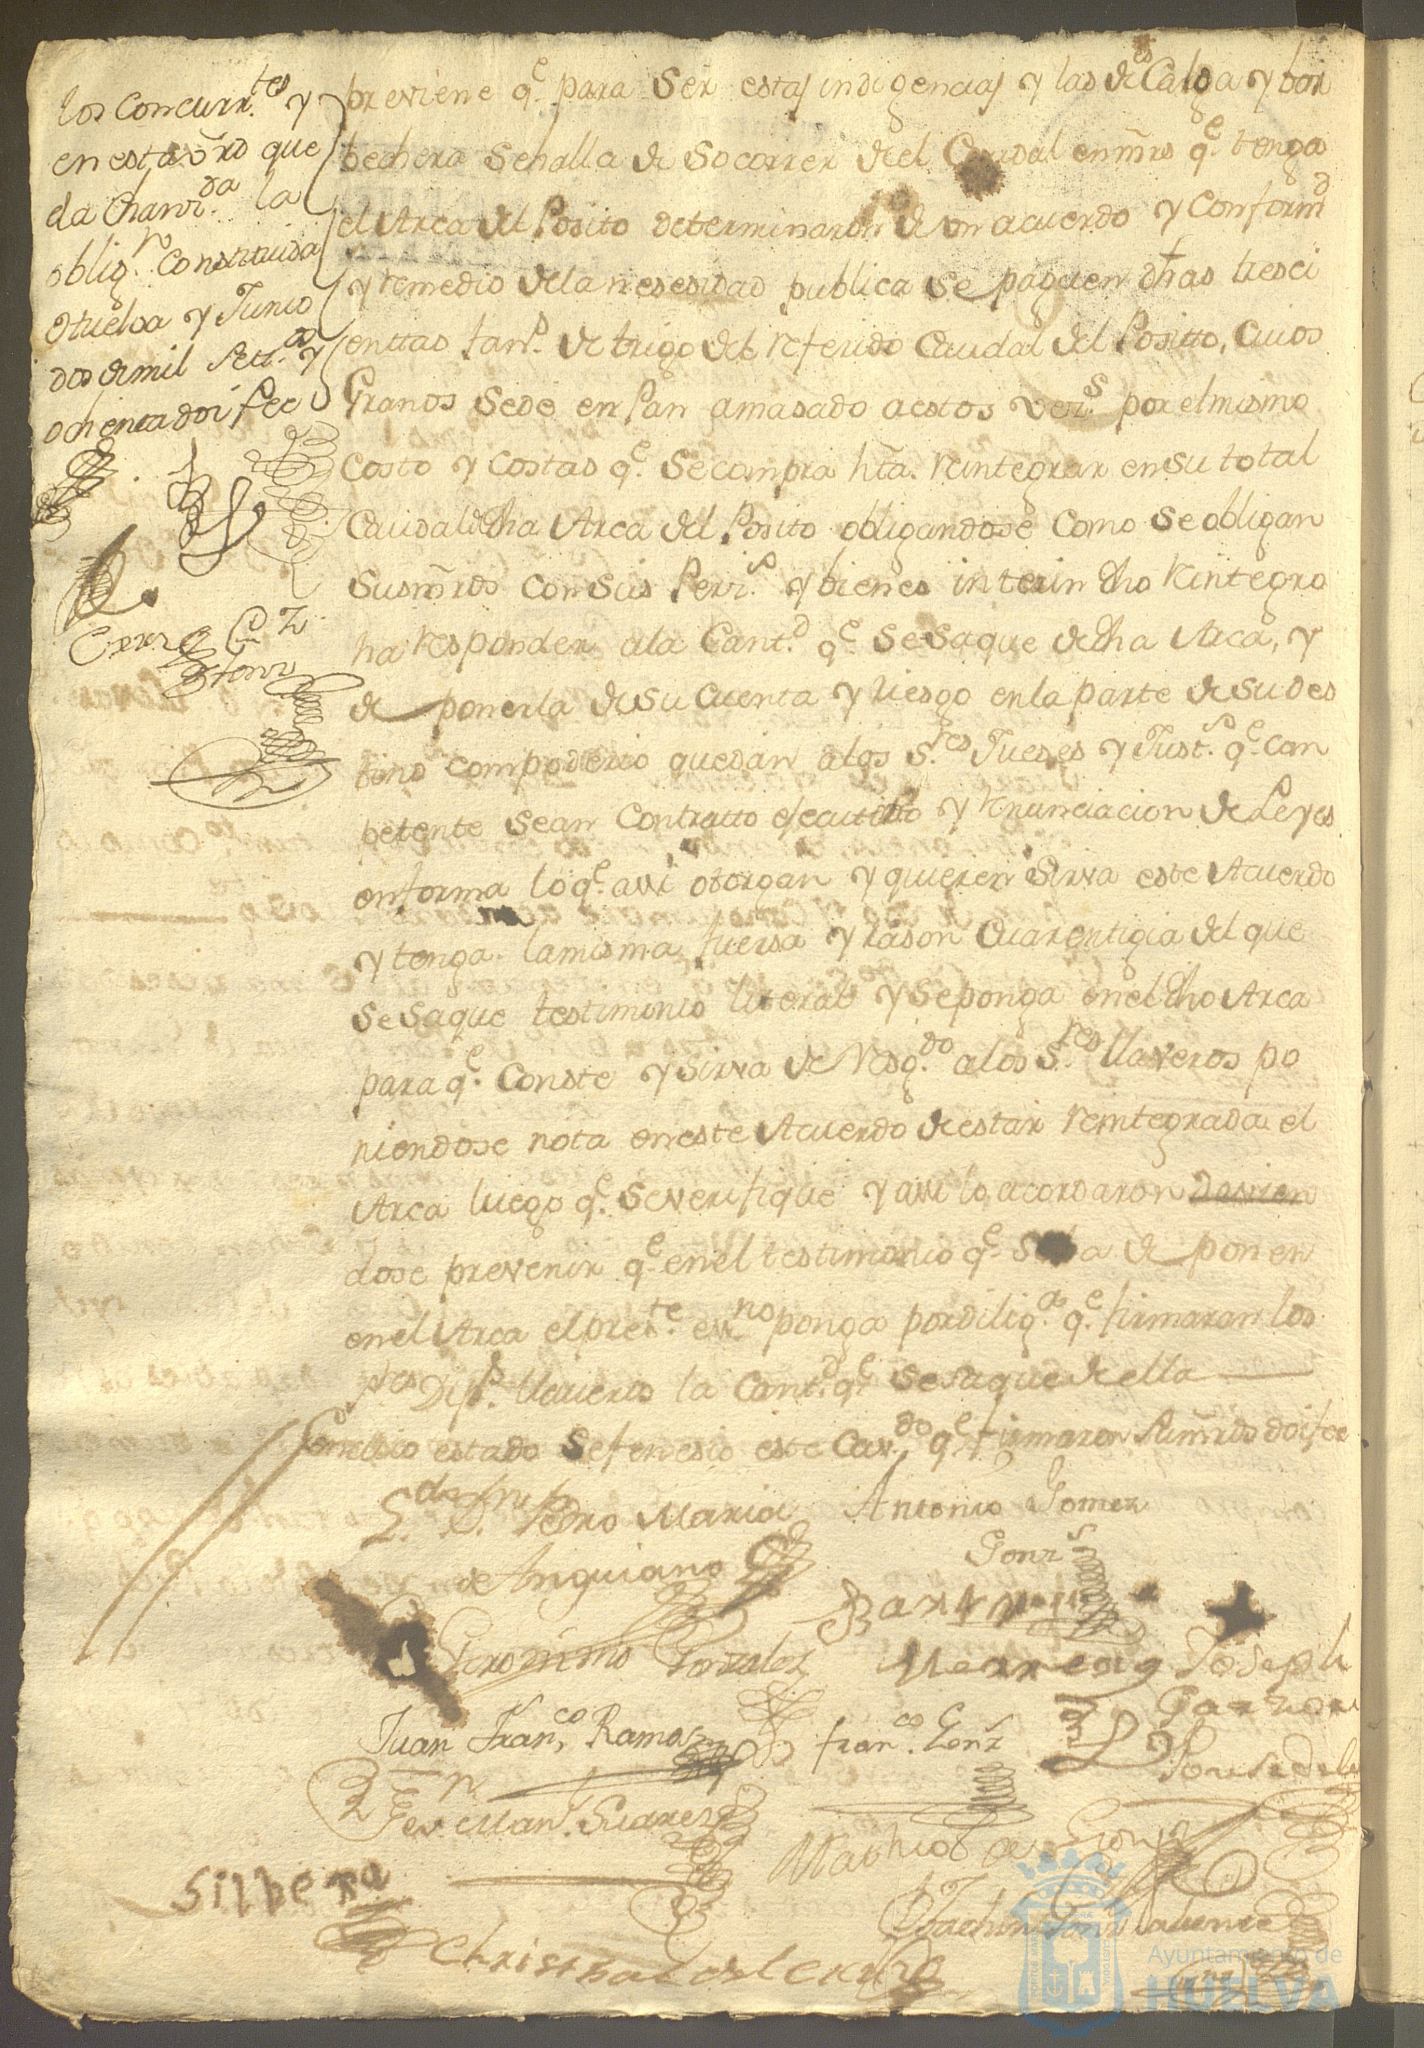 los Concurr.tes y
en esta orn que
da Chan.da la
oblig.n Constituida
Huelva y Junio
dos de mil Sett.os y
ochenta doi fee
previene q.e para Ser estas indigencias y las de es Calga y bar
bechera Se halla de Socorrer del Caudal en mrs q.e tenga
el Arca del Posito determinaron de un acuerdo y Conform.d
y remedio de la nesesidad publica Se paguen dhas tresci
enttas fan.s de trigo del referido Caudal del Positto, Cuios
Granos Se de en Pan amasado a estos vez.s por el mismo
Costo y Costas q.e Se compra hta. reintegrar en su total
Caudal dha Arca del Posito obligandose Como Se obligan
Sus mrds con Sus Pers.s y bienes interin dho reintegro
ha responder a la Cant.d q.e Se Saque de dha Arca, y
de ponerla de Su Cuenta y riesgo en la parte de Su des
tino com poderio que dan a los S.res Jueses y Just.s q.e Con
petente Sean Contratto ejecutibo y renunciacion de Leyes
en forma lo q.e assi otorgan y quieren Sirva este Acuerdo
y tenga la misma fuersa y rason Cuarentigia del que
Se Saque testimonio literal y Se ponga en el dho Arca
para q.e Conste y Sirva de resg.do a los S.res llaveros po
niendose nota en este Acuerdo de estar reintegrada el
Arca luego q.e Se verifique y assi lo acordaron
dose prevenir q.e en el testimonio q.e Se ha de poner en
en el Arca el pres.te ess.no ponga por dilig.a q.e firmaran los
S.res Dip.s llaveros la Cant.d q.e Se Saque de ella
En cuio estado Se fenesio este Cav.do q.e firmaron Sus mrds doi fee
Pedro Maria
de Anguiano
Antonio Gomez
Gonz.s
Geronimo Gonzales
Juan Fran.co Ramos
fran.co Gonz
Joseph
Garzon
Fer. Man. Suarez
Mathias
Silbera
Christobal del Cruz
Ayuntamiento de
HUELVA